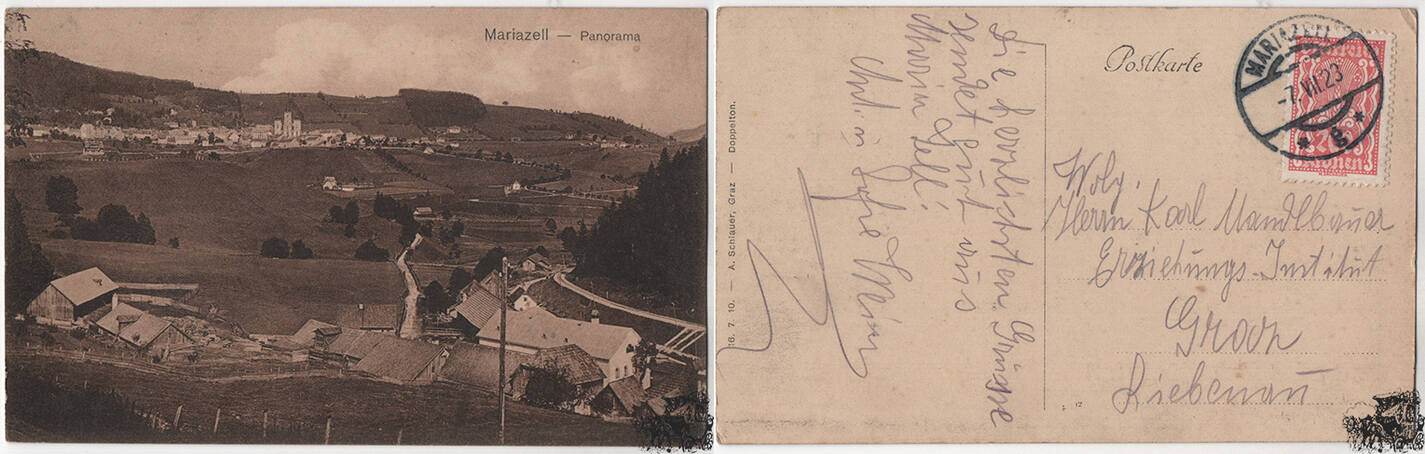 Mariazell — Panorama
16. 7. 10. — A. Schlauer, Graz — Doppelton.
die herrlichsten Grüsse
sendet Euch aus
Maria Zell!
Postkarte
MARIAZELL
-7.VII.23
* g *
Wolg.
Herrn Karl Mandlbauer
Erziehungs-Institut
Graz
Liebenau
12